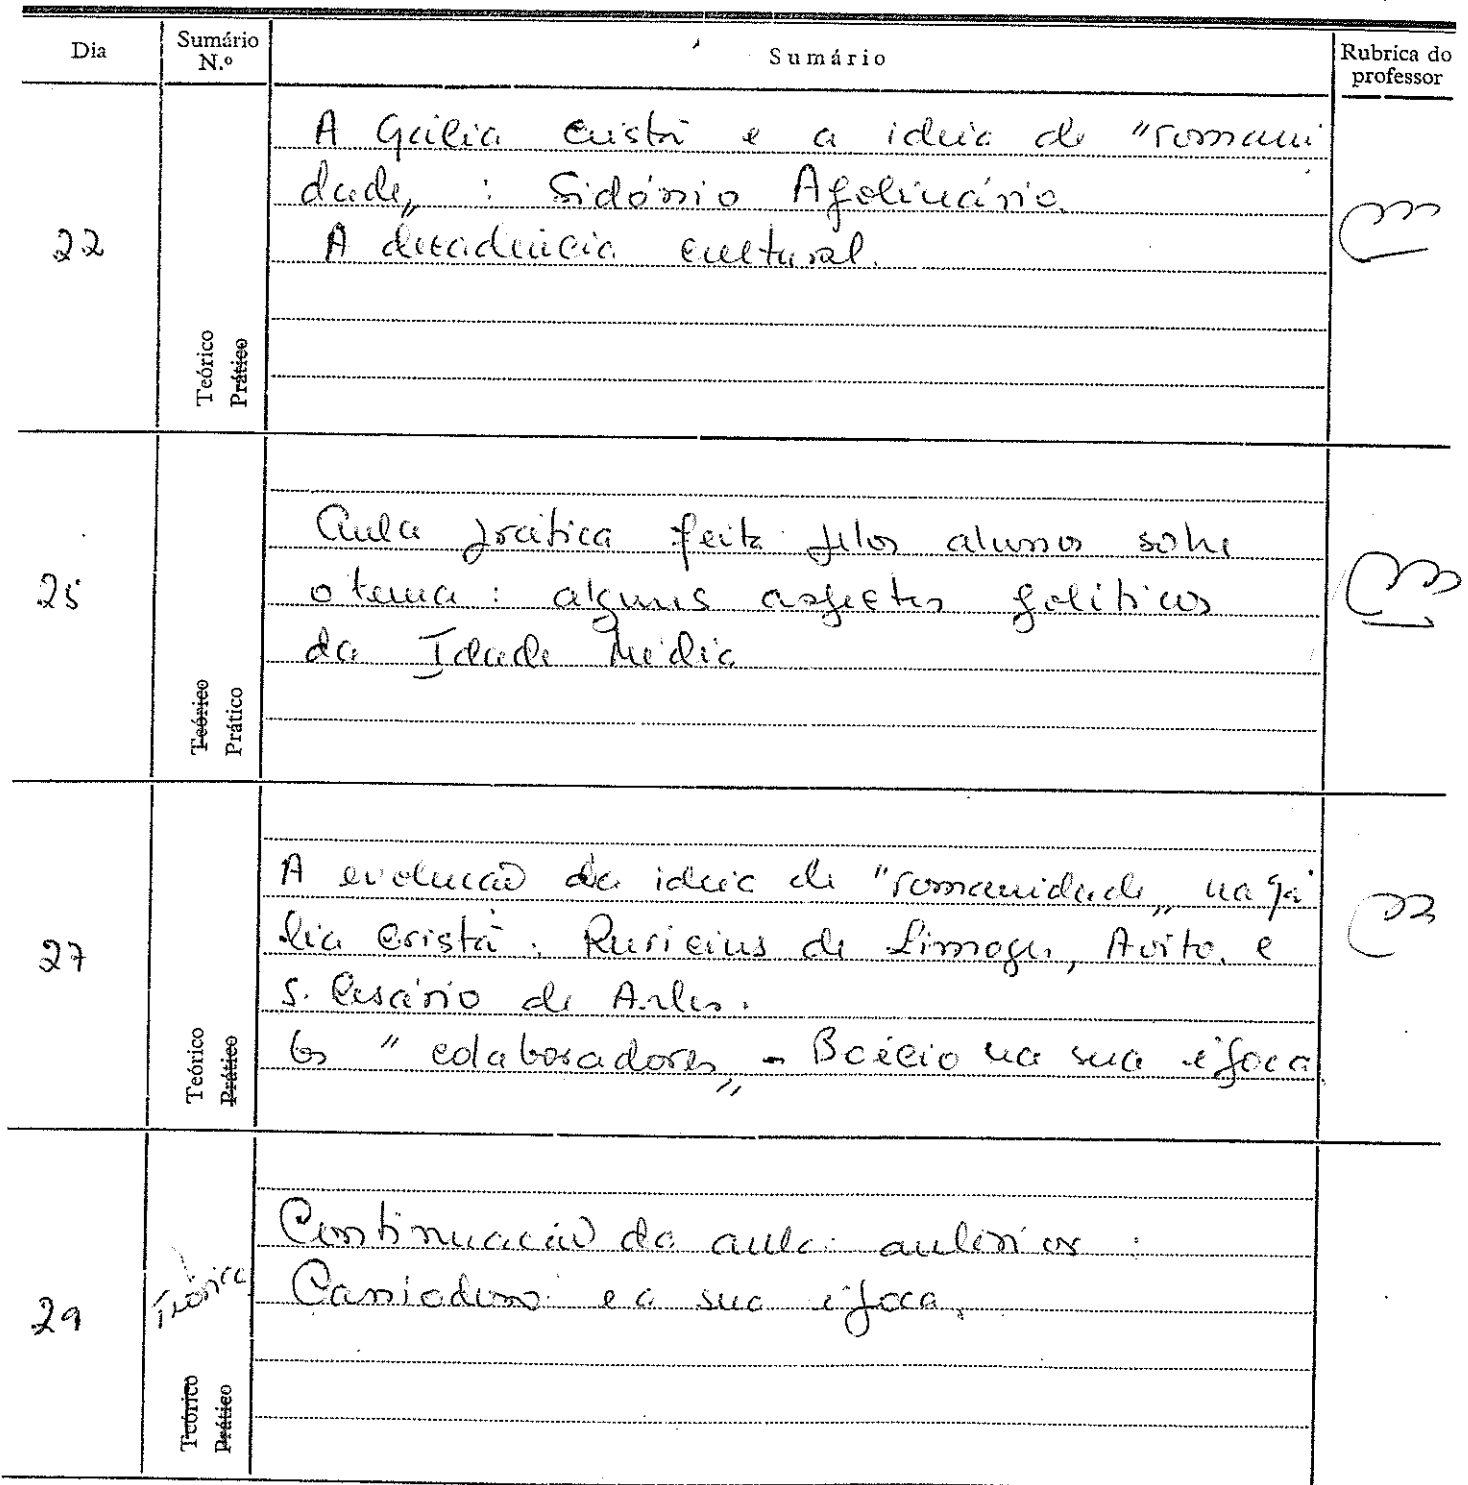 Dia
Sumário N.º
Sumário
Rubrica do professor
22
Teórico
Prático
A Gália cristã e a ideia de "romani
dade„ : Sidónio Apolinário.
A decadência cultural.
25
Teórico
Prático
Aula prática feita pelos alunos sobre
o tema : alguns aspectos políticos
da Idade Média
27
Teórico
Prático
A evolução da ideia de "romanidade„ na Gá
lia Cristã : Ruricius de Limoges, Avito, e
S. Cesário de Arles.
Os "colaboradores„ - Boécio na sua época.
29
Teórica
Teórico
Prático
Continuação da aula anterior :
Cassiodoro e a sua época.